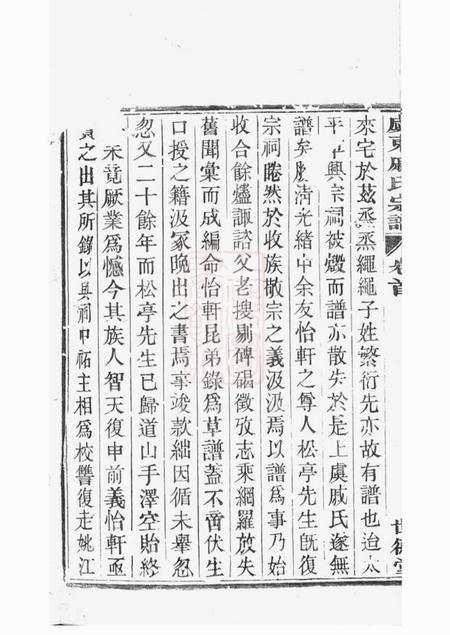 虞東戚氏宗譜 卷首 世德堂
來宅於茲烝烝繩繩子姓繁衍先亦故有譜也迨太
平軍興宗祠被燬而譜亦散失於是上虞戚氏遂無
譜矣勝清光緒中余友怡軒之尊人松亭先生旣復
宗祠睠然於收族散宗之義汲汲焉以譜爲事乃始
收合餘燼諏諮父老搜剔碑碣徵攷志乘網羅放失
舊聞彙而成編命怡軒昆弟錄爲草譜蓋不啻伏生
口授之籍汲冢晚出之書焉事竣款絀因循未舉忽
忽又二十餘年而松亭先生已歸道山手澤空貽終
未竟厥業爲憾今其族人智天復申前義怡軒亟
之出其所錄以與祠中祏主相爲校讐復走姚江